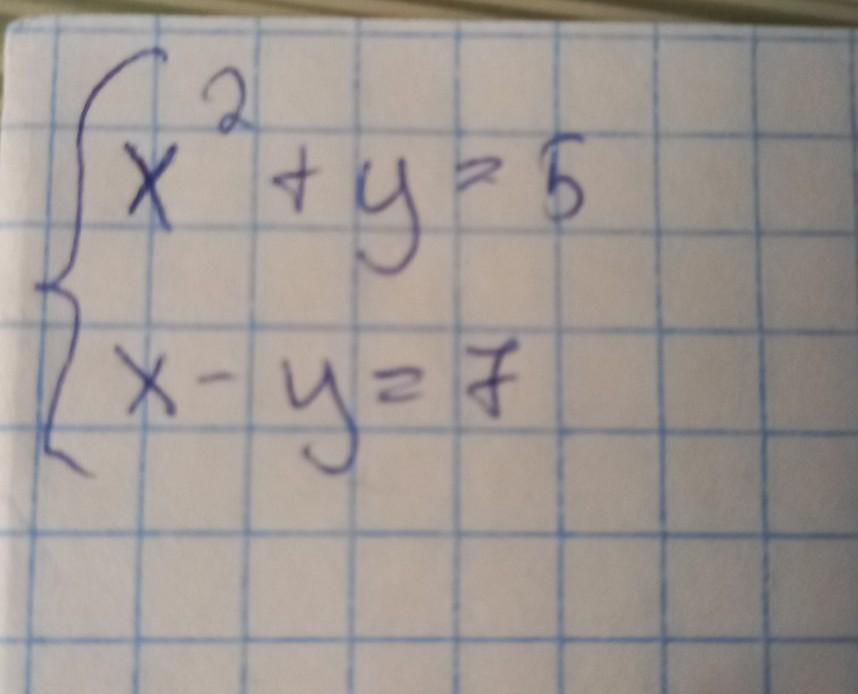 x² + y = 5
x - y = 7